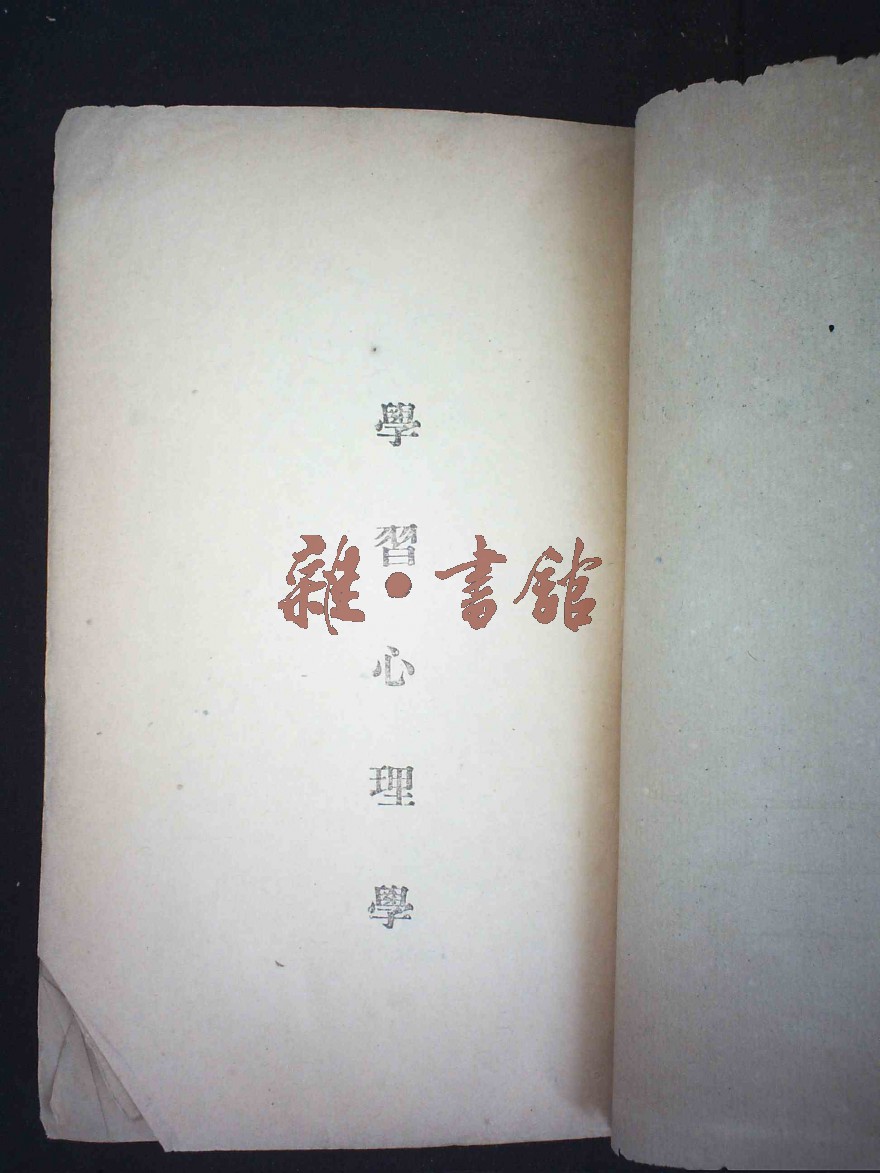 學習心理學
雜·書館